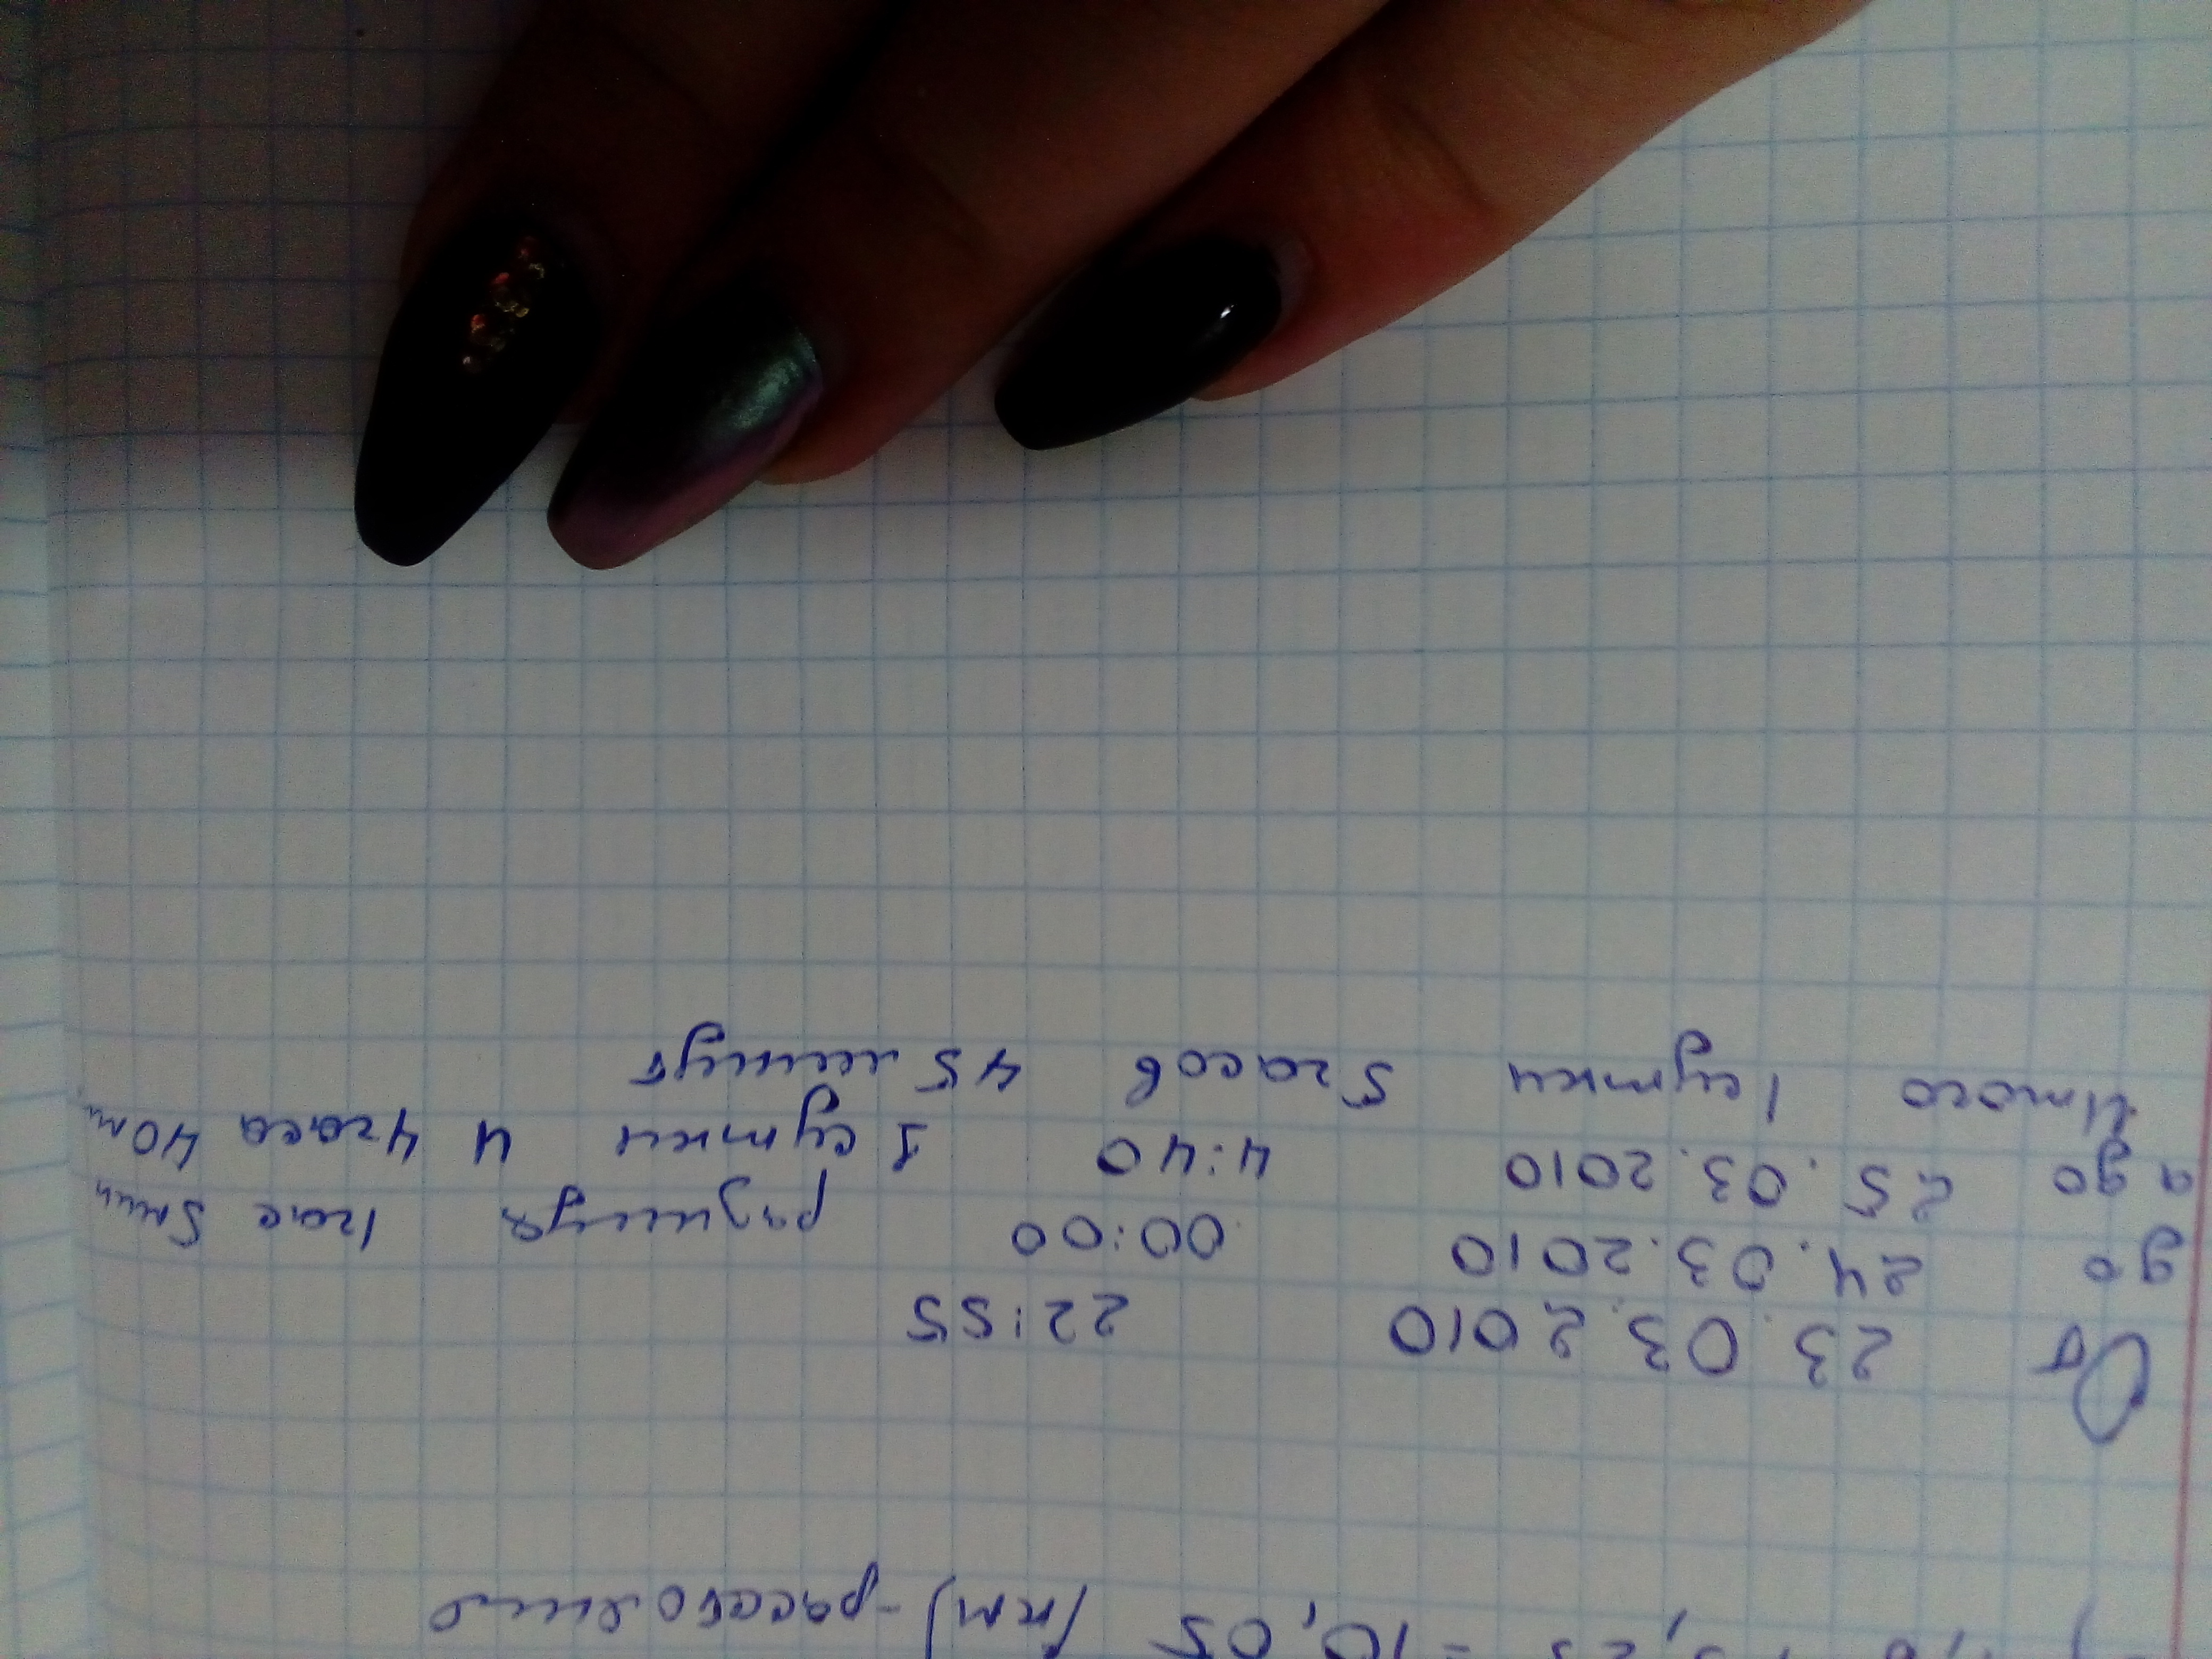 = 10,05 (км) - расстояние
От 23.03.2010 22:55
до 24.03.2010 00:00 разница 1 час 5 мин
а до 25.03.2010 4:40 1 сутки и 4 часа 40 м
Итого 1 сутки 5 часов 45 минут